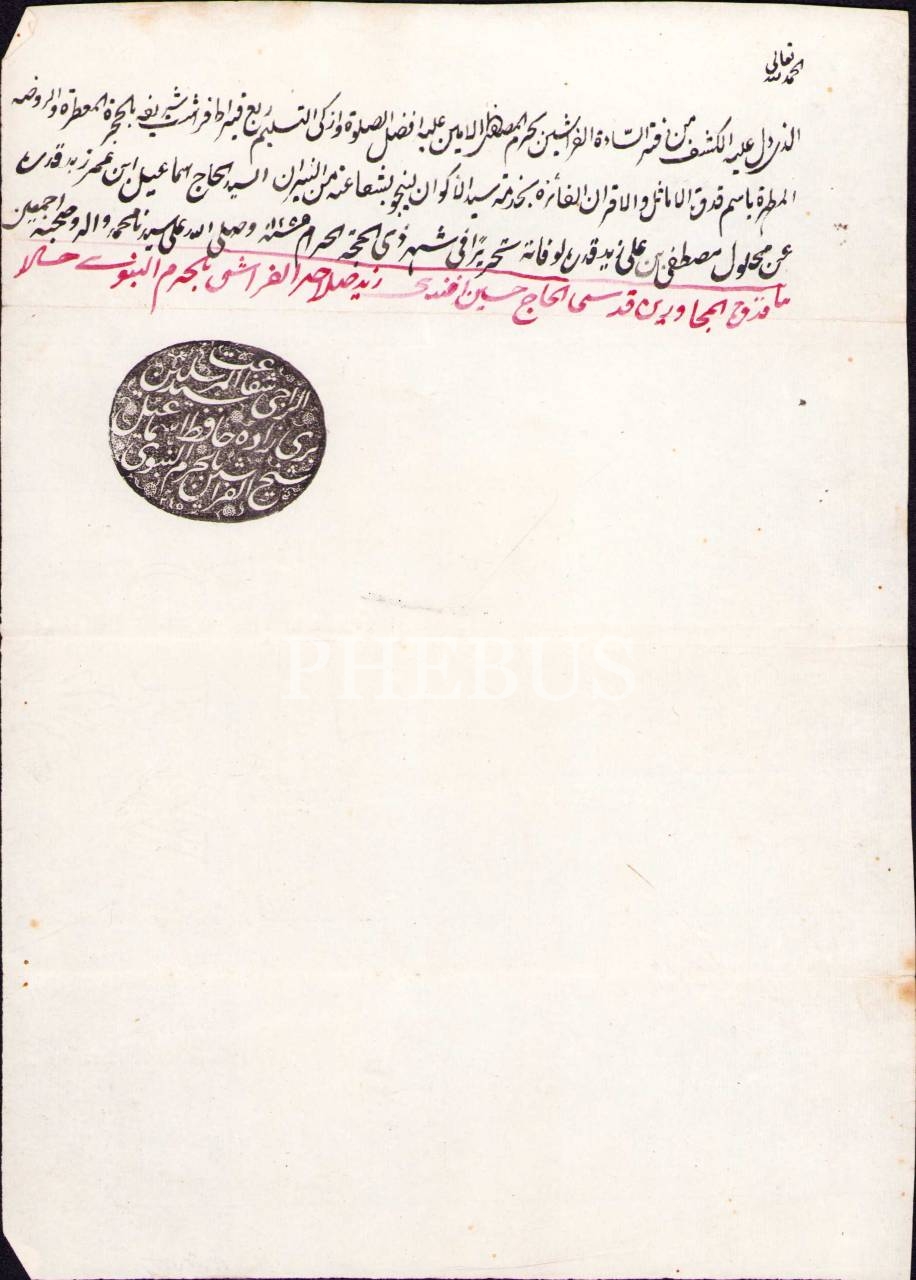 الحمد لله تعالى
الذى دل عليه الكشف من دفتر السادة الفراشين بحرم المصطفى الامين عليه افضل الصلوة وازكى التسليم ربع قيراط فراشت شريفه بالحجرة المعطرة والروضه
المطهرة باسم قدوة الاماثل والاقران الفائزه بخدمة سيد الأكوان لينجو بشفاعته من النيران السيد الحاج اسماعيل ابن عمر زيد قدره
عن محلول مصطفى بن على زيد قدره لوفاته تحريرًا فى شهر ذى الحجة الحرام سنه وصلى الله على سيدنا محمد واله وصحبه اجمعين
قدوة المجاورين قدسى الحاج حسين افندى زيد صلاحه الفراش بالحرم النبوى حالا
الراجى شفاعت سيد المرسلين
برى زاده حافظ اسماعيل
شيخ الفراشين بالحرم النبوى
PHEBUS